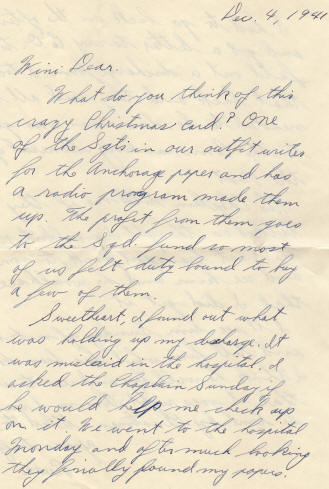 Dec. 4, 1941
Wini Dear.
What do you think of this
crazy Christmas card? One
of the Sgts in our outfit writes
for the Anchorage paper and has
a radio program made them
up. The profit from them goes
to the Sqd. fund so most
of us felt duty bound to buy
a few of them.
Sweetheart, I found out what
was holding up my discharge. It
was mislaid in the hospital. I
asked the Chaplain Sunday if
he would help me check up
on it. We went to the hospital
Monday and after much looking
they finally found my papers.